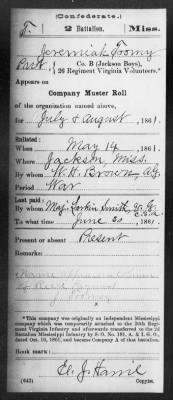 (Confederate.)
T. 2 Battalion. Miss.
Jeremiah Toomy
Pvt. Co. B (Jackson Boys),
26 Regiment Virginia Volunteers.*
Appears on
Company Muster Roll
of the organization named above,
for July & August, 1861.
Enlisted:
When May 14, 1861.
Where Jackson, Miss.
By whom W. H. Brown
Period War
Last paid:
By whom Maj. Larkin Smith,
To what time June 30, 1861.
Present or absent Present
Remarks:
Name
*This company was originally an independent Mississippi
company which was temporarily attached to the 26th Reg-
iment Virginia Infantry and afterwards transferred to the 2d
Battalion Mississippi Infantry by S. O. No. 181, A. & I. G. O.,
dated Oct. 16, 1861, and became Company A of that battalion.
Book mark:
(642) Copyist.